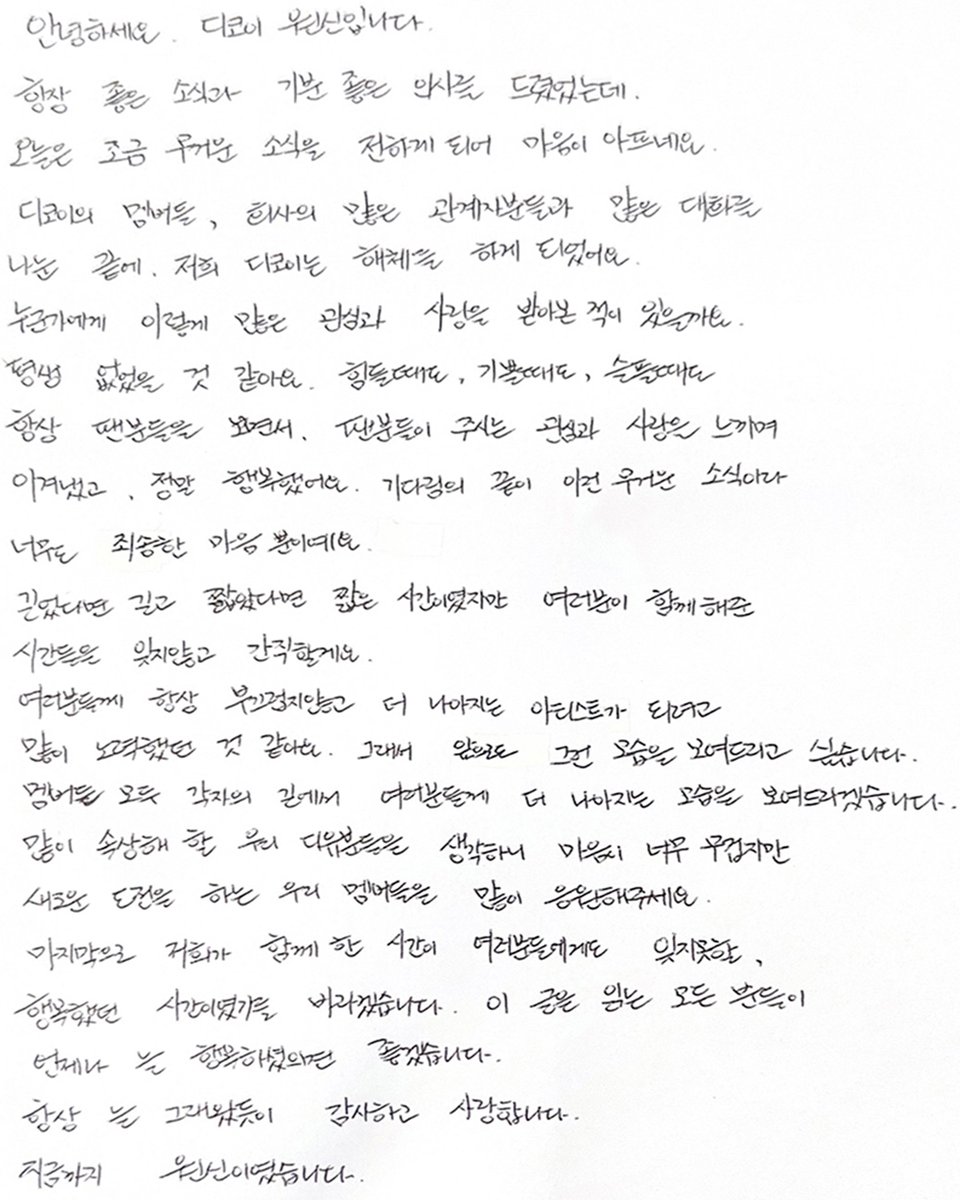 안녕하세요. 디코이 원신입니다.
항장 좋은 소식과 기분 좋은 의사를 드렸었는데.
오늘은 조금 무거운 소식을 전하게 되어 마음이 아프네요.
디코이의 멤버들, 회사의 많은 관계자분들과 많은 대화를
나눈 끝에. 저희 디코이는 해체를 하게 되었어요.
누군가에게 이렇게 많은 관심과 사랑을 받아본 적이 있을까요.
평생 없었을 것 같아요. 힘들때도, 기쁠때도, 슬플때도
항상 팬분들을 보면서. 팬분들이 주시는 관심과 사랑을 느끼며
이겨냈고, 정말 행복했어요. 기다림의 끝이 이런 무거운 소식이라
너무도 죄송한 마음 뿐이예요.
길었다면 길고 짧았다면 짧은 시간이였지만 여러분이 함께해준
시간들을 잊지않고 간직할게요.
여러분들께 항상 부끄럽지않고 더 나아지는 아티스트가 되려고
많이 노력했던 것 같아요. 그래서 앞으로도 그런 모습을 보여드리고 싶습니다.
멤버들 모두 각자의 길에서 여러분들께 더 나아지는 모습을 보여드리겠습니다.
많이 속상해 할 우리 디유분들을 생각하니 마음이 너무 무겁지만
새로운 도전을 하는 우리 멤버들을 많이 응원해주세요.
마지막으로 저희가 함께 한 시간이 여러분들에게도 잊지못할,
행복했던 시간이였기를 바라겠습니다. 이 글을 읽는 모든 분들이
언제나 늘 행복하셨으면 좋겠습니다.
항상 늘 그래왔듯이 감사하고 사랑합니다.
지금까지 원신이였습니다.